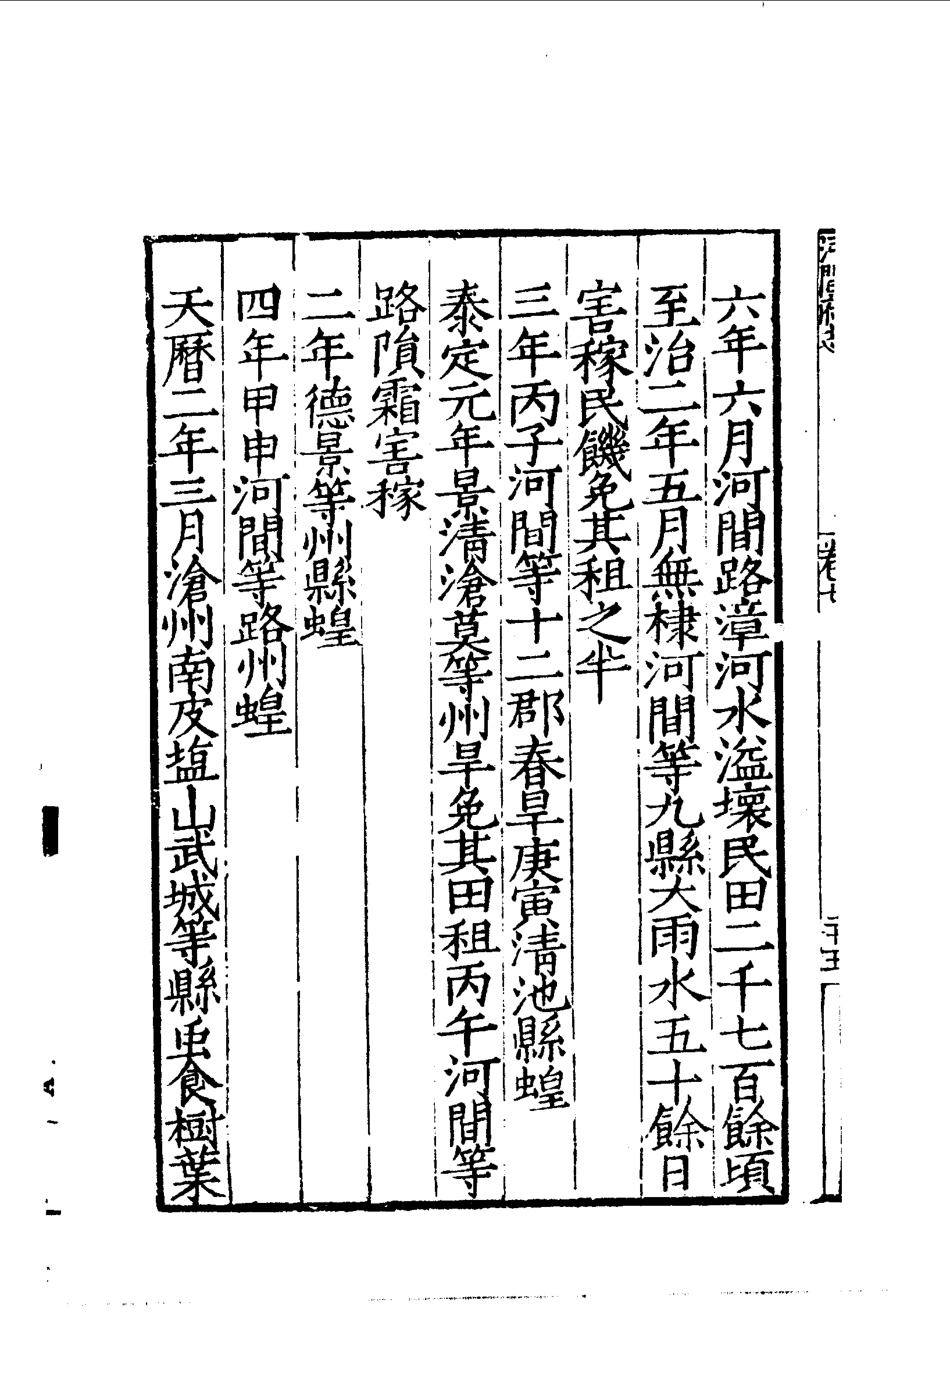 河間府志
卷七
二十五
六年六月河間路漳河水溢壞民田二千七百餘頃
至治二年五月無棣河間等九縣大雨水五十餘日
害稼民饑免其租之半
三年丙子河間等十二郡春旱庚寅清池縣蝗
泰定元年景清滄莫等州旱免其田租丙午河間等
路隕霜害稼
二年德景等州縣蝗
四年甲申河間等路州蝗
天曆二年三月滄州南皮塩山武城等縣䖝食樹葉